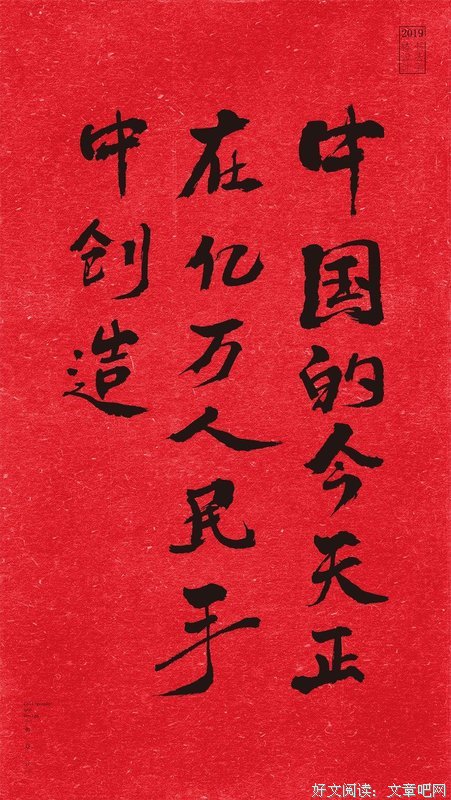 2019
中国的今天正
在亿万人民手
中创造
好文阅读：文章吧网